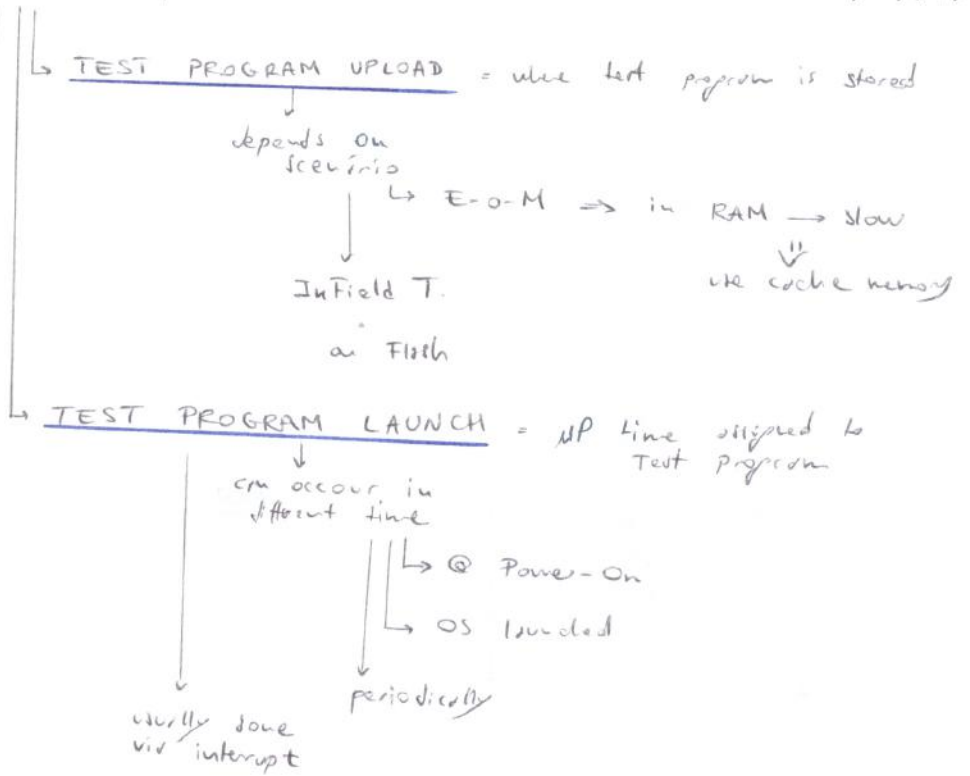 TEST PROGRAM UPLOAD = where test program is stored
depends on
scenario
E-o-M => in RAM → slow
use cache memory
InField T.
on Flash
TEST PROGRAM LAUNCH = μP time assigned to
Test program
can occour in
different time
@ Power-On
OS launched
periodically
usually done
via interrupt